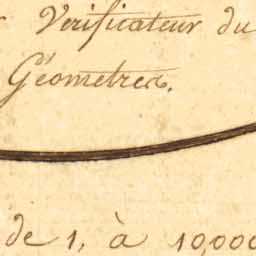 Verificateur du
Géometres.
de 1, à 10,000